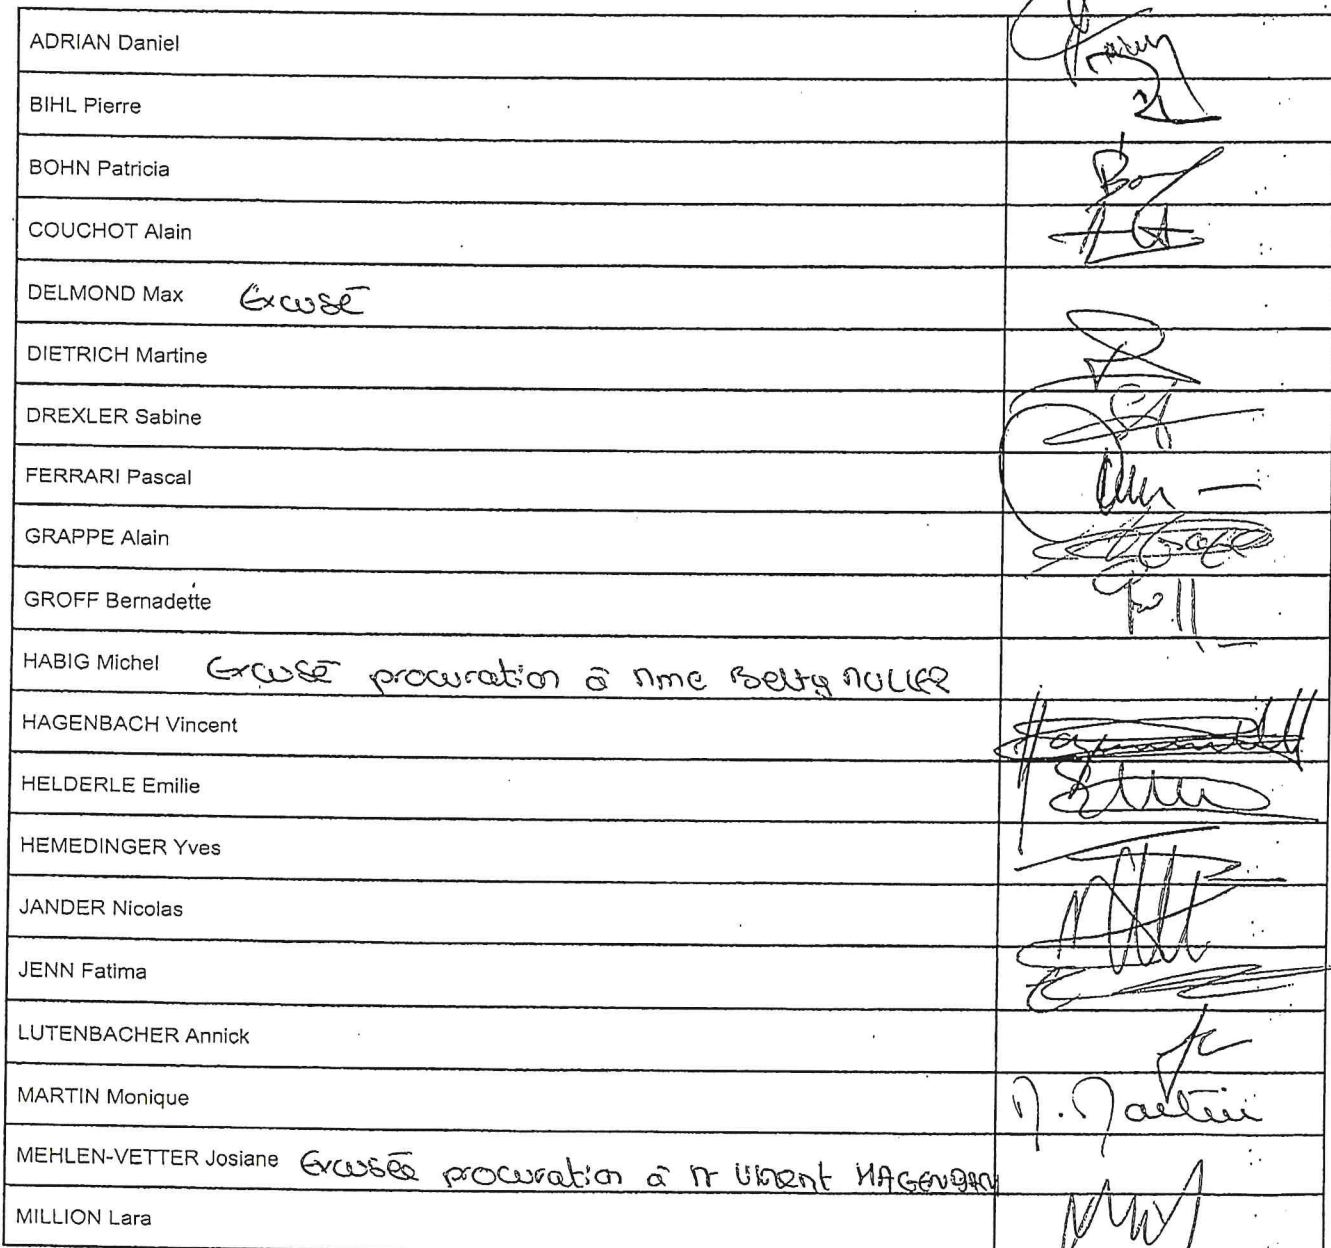 ADRIAN Daniel
BIHL Pierre
BOHN Patricia
COUCHOT Alain
DELMOND Max Excusé
DIETRICH Martine
DREXLER Sabine
FERRARI Pascal
GRAPPE Alain
GROFF Bernadette
HABIG Michel Excusé procuration à Mme Betty MULLER
HAGENBACH Vincent
HELDERLE Emilie
HEMEDINGER Yves
JANDER Nicolas
JENN Fatima
LUTENBACHER Annick
MARTIN Monique M. Martin
MEHLEN-VETTER Josiane Excusée procuration à Mr Vincent HAGENBACH
MILLION Lara